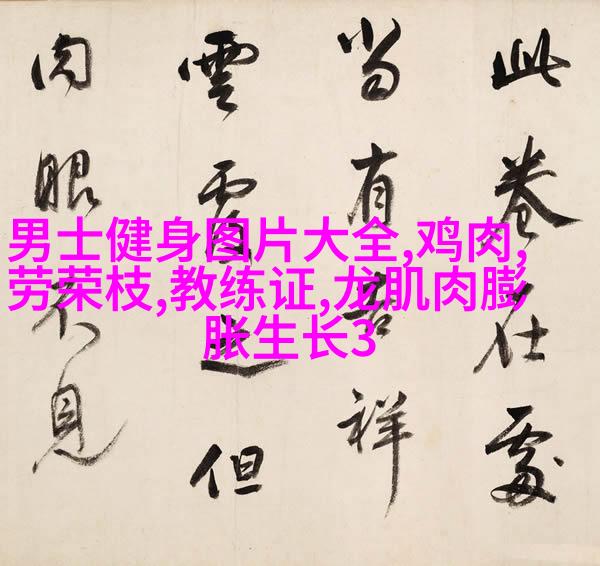 男士健身图片大全,鸡肉,
劳荣枝,教练证,龙肌肉膨
胀生长3
此卷在處
當有吉祥
雲覆之但
肉眼不見